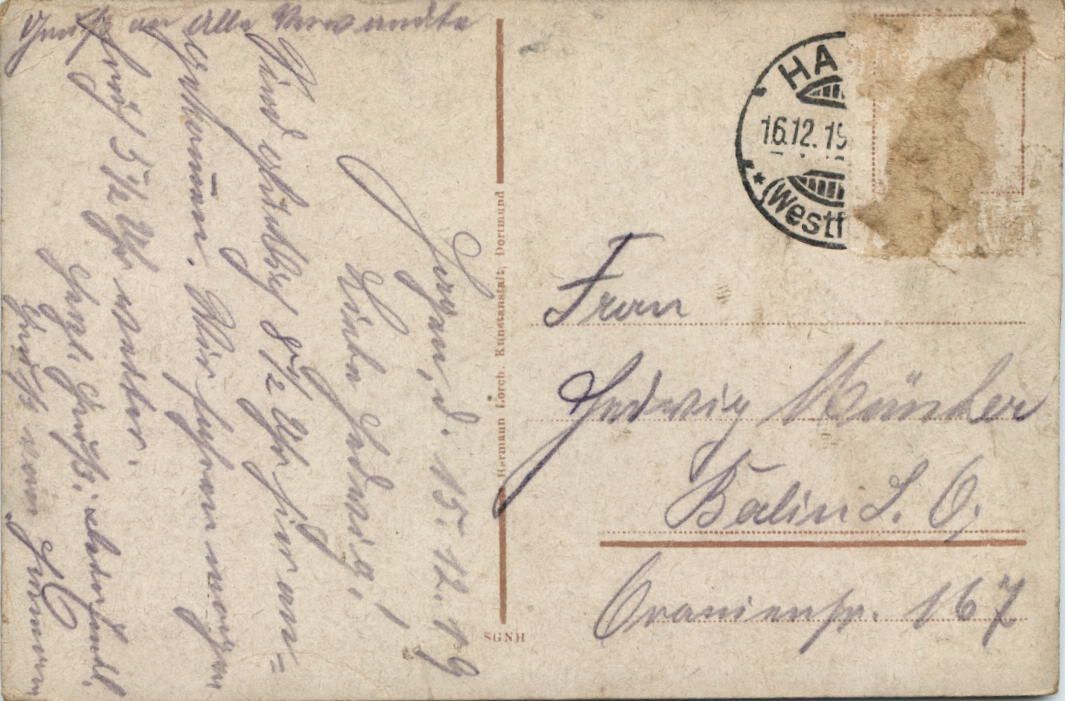 Grüße an Alle Verwandte
Hagen, d. 15.12.19
Liebe Hedwig!
Sind glücklich 8 1/2 Uhr hier an=
gekommen. Wir fahren morgen
früh 5 1/2 Uhr weiter.
Herzl. Grüße
Grüße von Hermann
Hermann Lorch, Kunstanstalt, Dortmund
SGNH
HA
16.12.19
* (Westf
Frau
Hedwig
Berlin S. O.
Oranienstr. 167